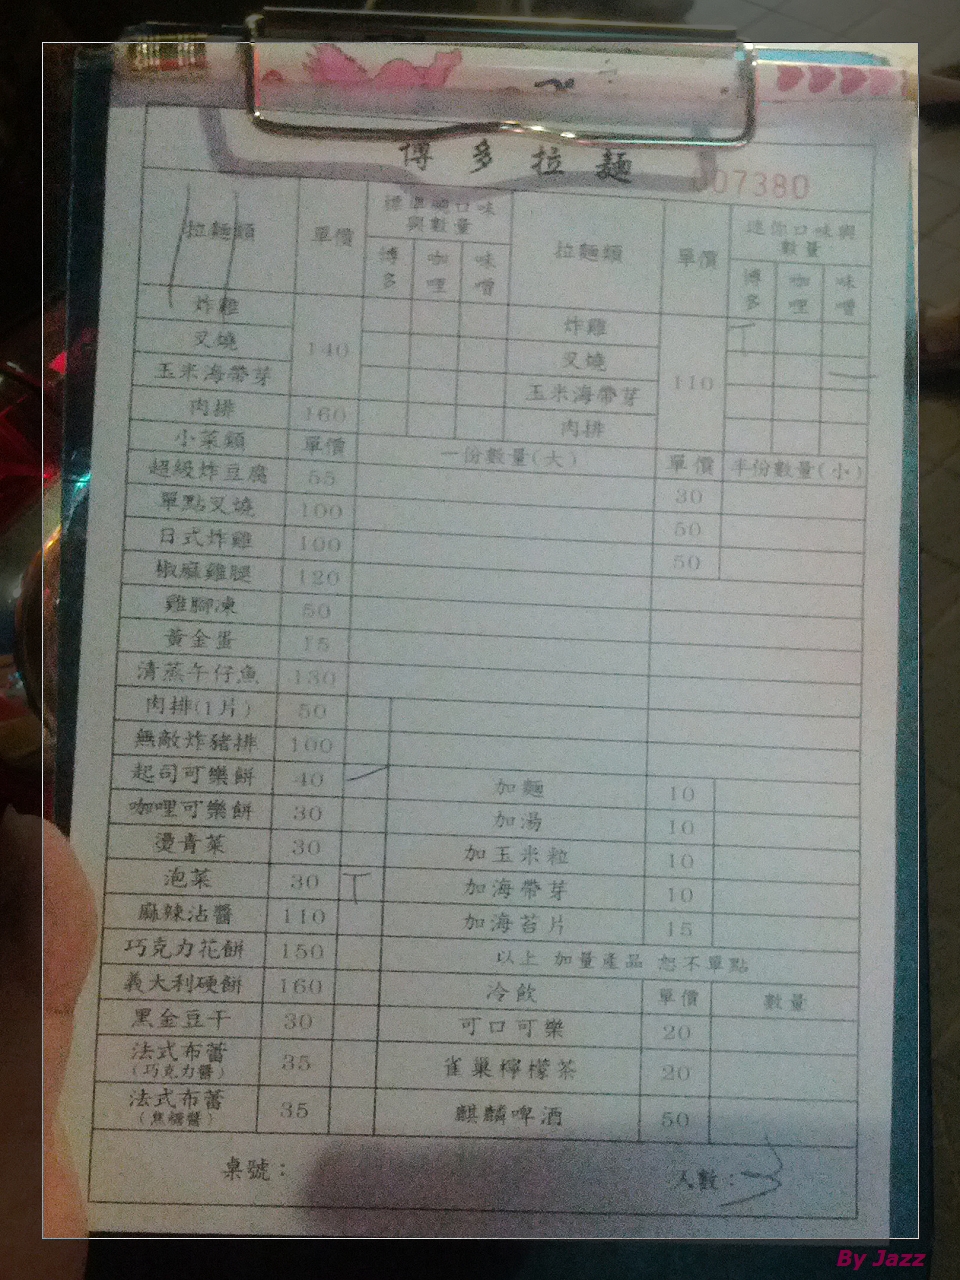 博多拉麵
007380
拉麵類 單價 標準碗口味與數量 拉麵類 單價 迷你口味與數量
博多 咖哩 味噌 博多 咖哩 味噌
炸雞 140 炸雞 110
叉燒 叉燒
玉米海帶芽 玉米海帶芽
肉排 160 肉排
小菜類 單價 一份數量(大) 單價 半份數量(小)
超級炸豆腐 55 30
單點叉燒 100 50
日式炸雞 100 50
椒麻雞腿 120
雞腳凍 50
黃金蛋 15
清蒸午仔魚 130
肉排(1片) 50
無敵炸豬排 100
起司可樂餅 40 加麵 10
咖哩可樂餅 30 加湯 10
燙青菜 30 加玉米粒 10
泡菜 30 加海帶芽 10
麻辣沾醬 110 加海苔片 15
巧克力花餅 150 以上 加量產品 恕不單點
義大利硬餅 160 冷飲 單價 數量
黑金豆干 30 可口可樂 20
法式布蕾(巧克力醬) 35 雀巢檸檬茶 20
法式布蕾(焦糖醬) 35 麒麟啤酒 50
桌號: 人數:3
By Jazz